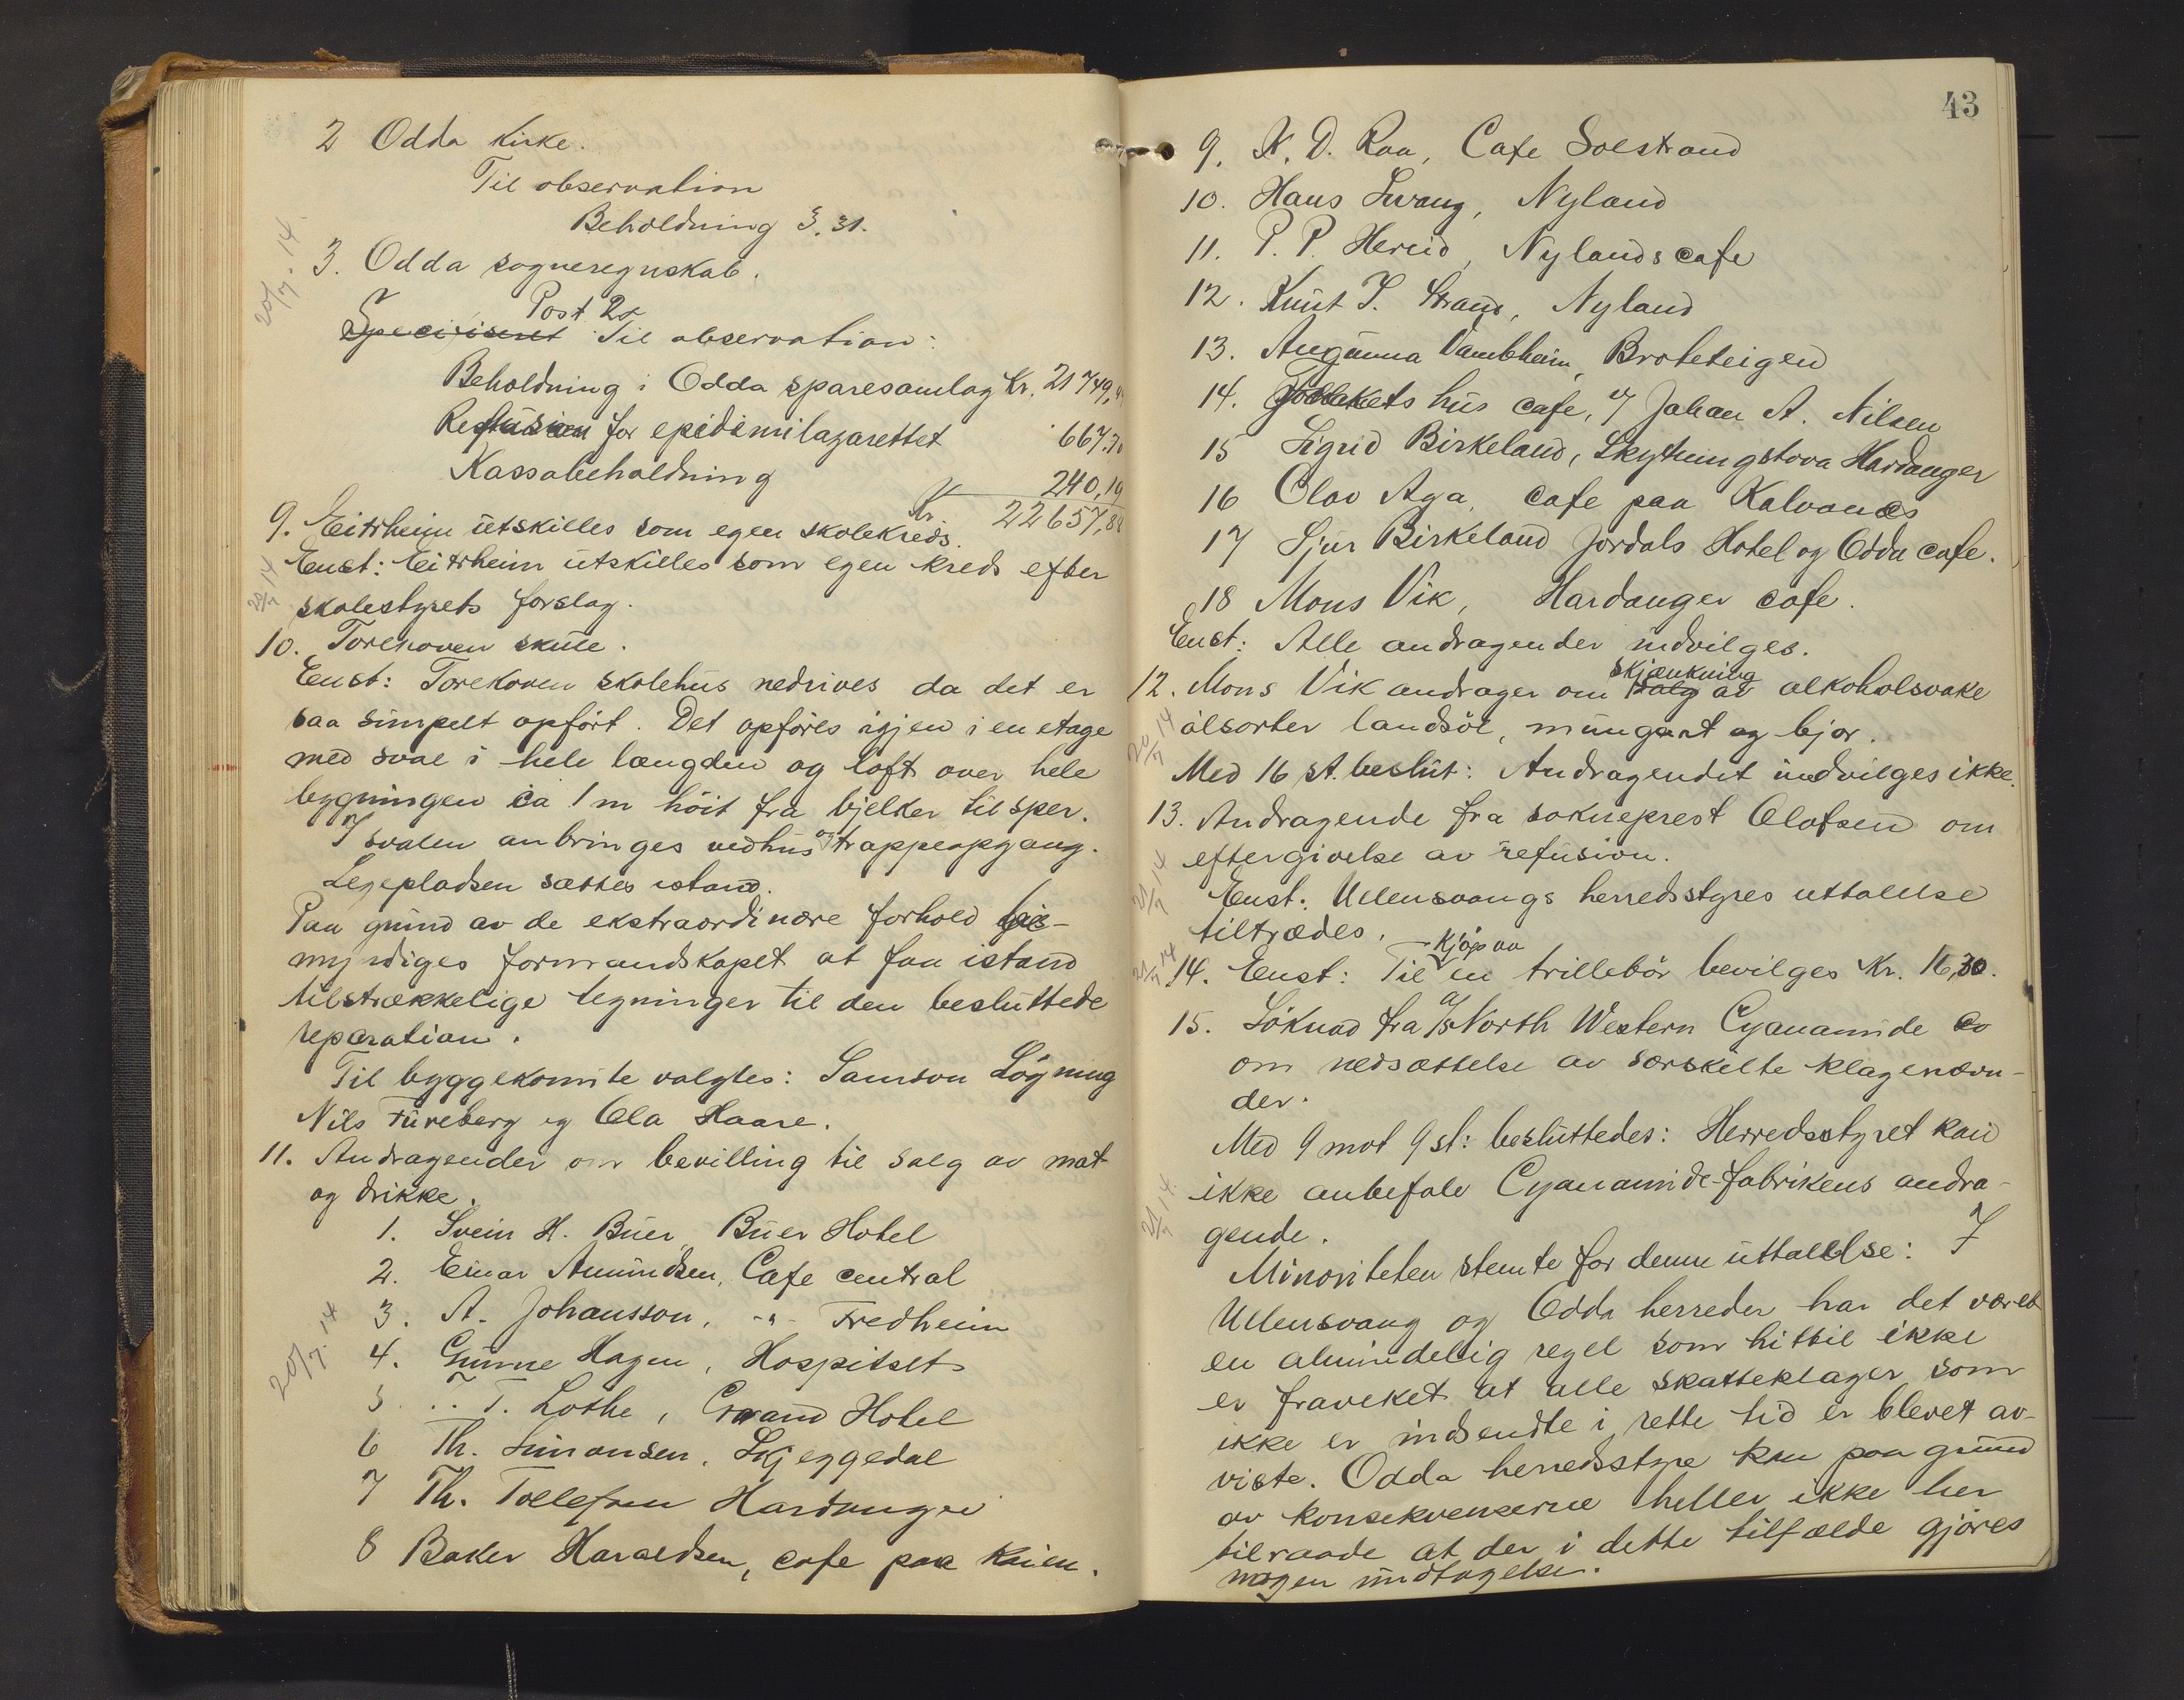 2 Odda kirke.
Til observation
Beholdning 3.31.
20/7.14.
3. Odda sogneregnskab.
Post 2a
Specificeret Til observation:
Beholdning i Odda sparesamlag Kr. 21749,
Refusion for epidemilazarettet 667.70
Kassabeholdning 240,19
Kr 22657,88
9. Eitrheim utskilles som egen skolekreds.
Enst: Eitrheim utskilles som egen kreds efter
20/7 14
skolestyrets forslag.
10. Torekoven skule.
Enst: Torekoven skolehus nedrives da det er
saa simpelt opført. Det opføres igjen i en etage
med sval i hele længden og loft over hele
bygningen ca 1 m höit fra bjelker til sper.
I svalen anbringes vedhus og trappeopgang.
Legepladsen sættes istand.
Paa grund av de ekstraordinære forhold be-
myndiges formandskapet at faa istand
tilstrækkelige tegninger til den besluttede
reparation.
Til byggekomite valgtes: Samson Løyning
Nils Fureberg og Ola Haare.
11. Andragender om bevilling til salg av mat
og drikke.
1. Svein H. Buer, Buer Hotel
2. Einar Amundsen, Cafe central
3. A. Johansson, -"- Fredheim
20/7.14
4. Gunne Hagen, Hospitset
5 T. Lothe, Grand Hotel
6 Th. Simonsen, Skjeggedal
7 Th. Tollefsen Hardanger
8 Baker Haraldsen, cafe paa Kaien.
43
9. K. D. Raa, Cafe Solstrand
10. Hans Lwang, Nyland
11. P. P. Hereid, Nylands cafe
12. Knut T. Strand, Nyland
13. Augunna Vambheim, Broteteigen
14. Folkets hus cafe, v/ Johan A. Nilsen
15 Sigrid Birkeland, Skytningstova Hardanger
16 Olav Aga, cafe paa Kalvanes
17 Sjur Birkeland Jordals Hotel og Odda cafe.
18 Mons Vik, Hardanger cafe.
Enst: Alle andragender indvilges.
skjænkning
12. Mons Vik andrager om salg av alkoholsvake
20/7 14
ölsorter landsöl, mungaat og bjor.
Med 16 st. beslut: Andragendet indvilges ikke.
13. Andragende fra sokneprest Olafsen om
eftergivelse av refusion.
21/7 14
Enst: Ullensvangs herredsstyres uttalelse
tiltrædes.
kjøp av
21/7 14
14. Enst: Til en trillebör bevilges Kr. 16,30.
15. Söknad fra A/S North Western Cyanamide Co
om nedsættelse av særskilte klagenævn-
der.
Med 9 mot 9 st: besluttedes: Herredsstyret kan
21/7 14
ikke anbefale Cyanamide-fabrikens andra-
gende.
Minoriteten stemte for denne uttalelse: I
Ullensvang og Odda herreder har det været
en almindelig regel som hittil ikke
er fraveket at alle skatteklager som
ikke er indsendte i rette tid er blevet av-
viste. Odda herredsstyre kan paa grund
av konsekvenserne heller ikke her
tilraade at der i dette tilfælde gjøres
nogen undtagelse.